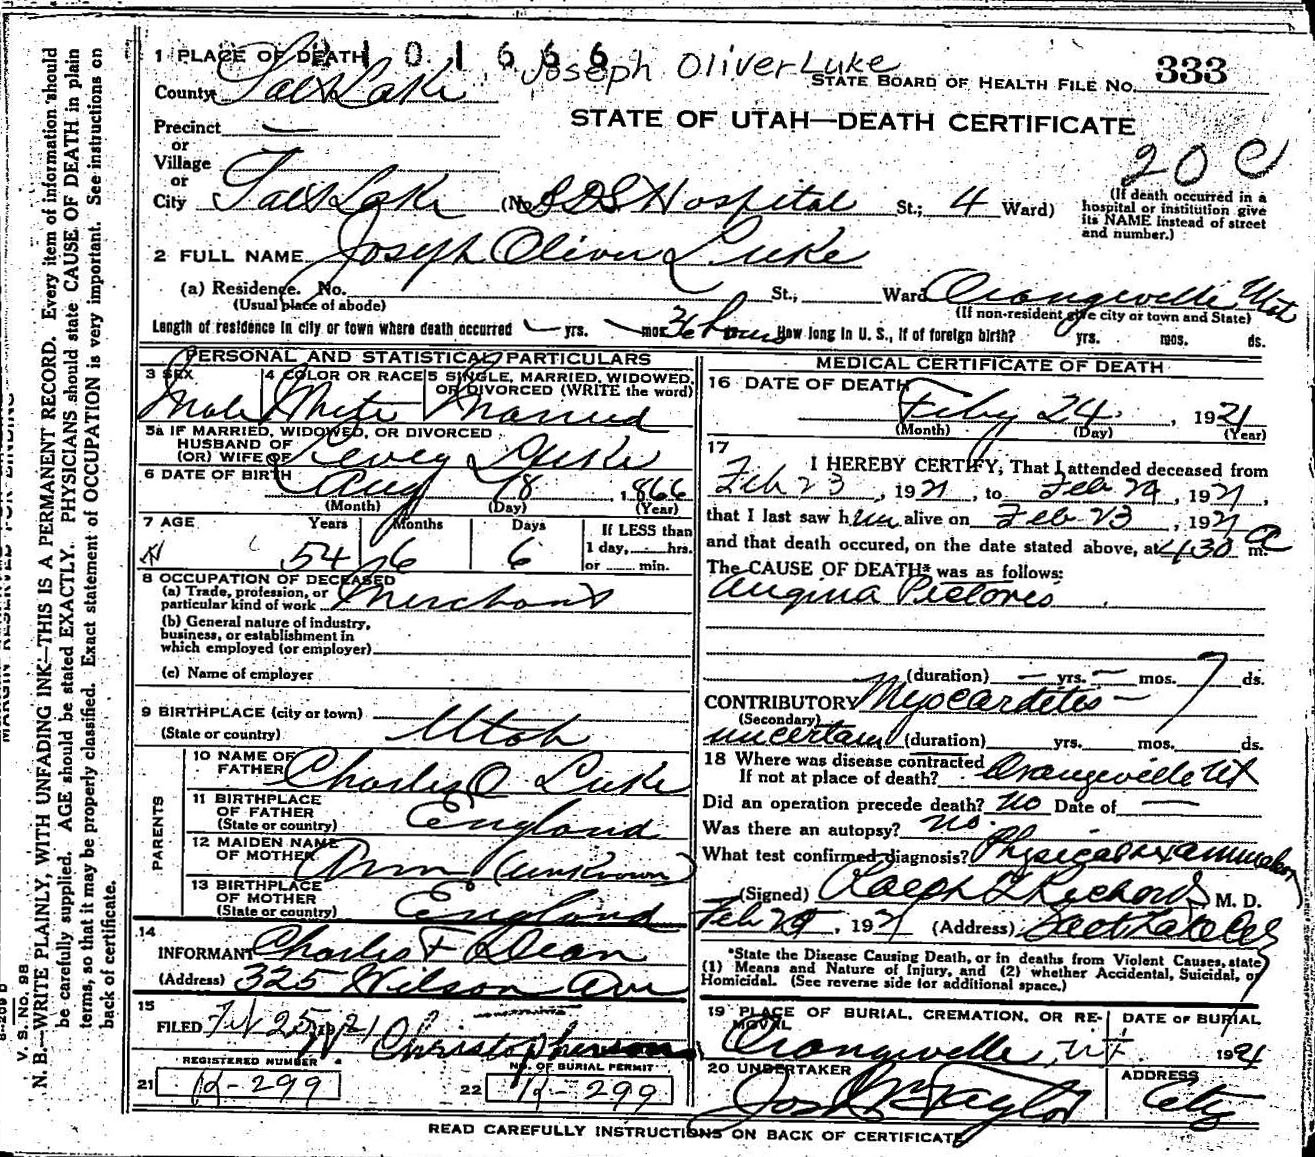 1 PLACE OF DEATH 101666 Joseph Oliver Luke
STATE BOARD OF HEALTH FILE NO. 333
County Salt Lake
STATE OF UTAH—DEATH CERTIFICATE
Precinct
or
Village
or
20 C
City Salt Lake (No. LDS Hospital St.; 4 Ward)
(If death occurred in a hospital or institution give its NAME instead of street and number.)
2 FULL NAME Joseph Oliver Luke
(a) Residence. No. St., Ward Orangeville Utah
(Usual place of abode) (If non-resident give city or town and State)
Length of residence in city or town where death occurred — yrs. — mos. 36 hours How long in U. S., if of foreign birth? yrs. mos. ds.
PERSONAL AND STATISTICAL PARTICULARS
3 SEX Male
4 COLOR OR RACE White
5 SINGLE, MARRIED, WIDOWED, OR DIVORCED (WRITE the word) Married
5a IF MARRIED, WIDOWED, OR DIVORCED
HUSBAND OF
(OR) WIFE OF Luke
6 DATE OF BIRTH Aug 18, 1866
(Month) (Day) (Year)
7 AGE Years Months Days If LESS than
54 6 6 1 day, hrs.
or min.
8 OCCUPATION OF DECEASED
(a) Trade, profession, or
particular kind of work Merchant
(b) General nature of industry,
business, or establishment in
which employed (or employer)
(c) Name of employer
9 BIRTHPLACE (city or town)
(State or country) Utah
PARENTS
10 NAME OF FATHER Charles O Luke
11 BIRTHPLACE OF FATHER (State or country) England
12 MAIDEN NAME OF MOTHER Ann (unknown)
13 BIRTHPLACE OF MOTHER (State or country) England
14
INFORMANT Charles F Dean
(Address) 325 Wilson Ave
15
FILED Feb 25, 1921 Christopherson
REGISTERED NUMBER NO. OF BURIAL PERMIT
21 K-299 22 K-299
MEDICAL CERTIFICATE OF DEATH
16 DATE OF DEATH Feby 24, 1921
(Month) (Day) (Year)
17
I HEREBY CERTIFY, That I attended deceased from
Feb 23, 1921, to Feb 24, 1921,
that I last saw him alive on Feb 23, 1921
and that death occured, on the date stated above, at 430 a m.
The CAUSE OF DEATH* was as follows:
Angina Pictoris
(duration) — yrs. — mos. 7 ds.
CONTRIBUTORY Myocardites —
(Secondary)
uncertain (duration) yrs. mos. ds.
18 Where was disease contracted
If not at place of death? Orangeville Ut
Did an operation precede death? no Date of —
Was there an autopsy? no.
What test confirmed diagnosis? Physical examination
(Signed) Ralph T Richards M. D.
Feb 24, 1921 (Address) Salt Lake City
*State the Disease Causing Death, or in deaths from Violent Causes, state
(1) Means and Nature of Injury, and (2) whether Accidental, Suicidal, or
Homicidal. (See reverse side for additional space.)
19 PLACE OF BURIAL, CREMATION, OR RE- DATE OF BURIAL
MOVAL
Orangeville, Ut. 1921
20 UNDERTAKER ADDRESS
Jos Wm Taylor City
READ CAREFULLY INSTRUCTIONS ON BACK OF CERTIFICATE
V. S. No. 98
N. B.—WRITE PLAINLY, WITH UNFADING INK—THIS IS A PERMANENT RECORD. Every item of information should
be carefully supplied. AGE should be stated EXACTLY. PHYSICIANS should state CAUSE OF DEATH in plain
terms, so that it may be properly classified. Exact statement of OCCUPATION is very important. See instructions on
back of certificate.
MARGIN RESERVED FOR BINDING